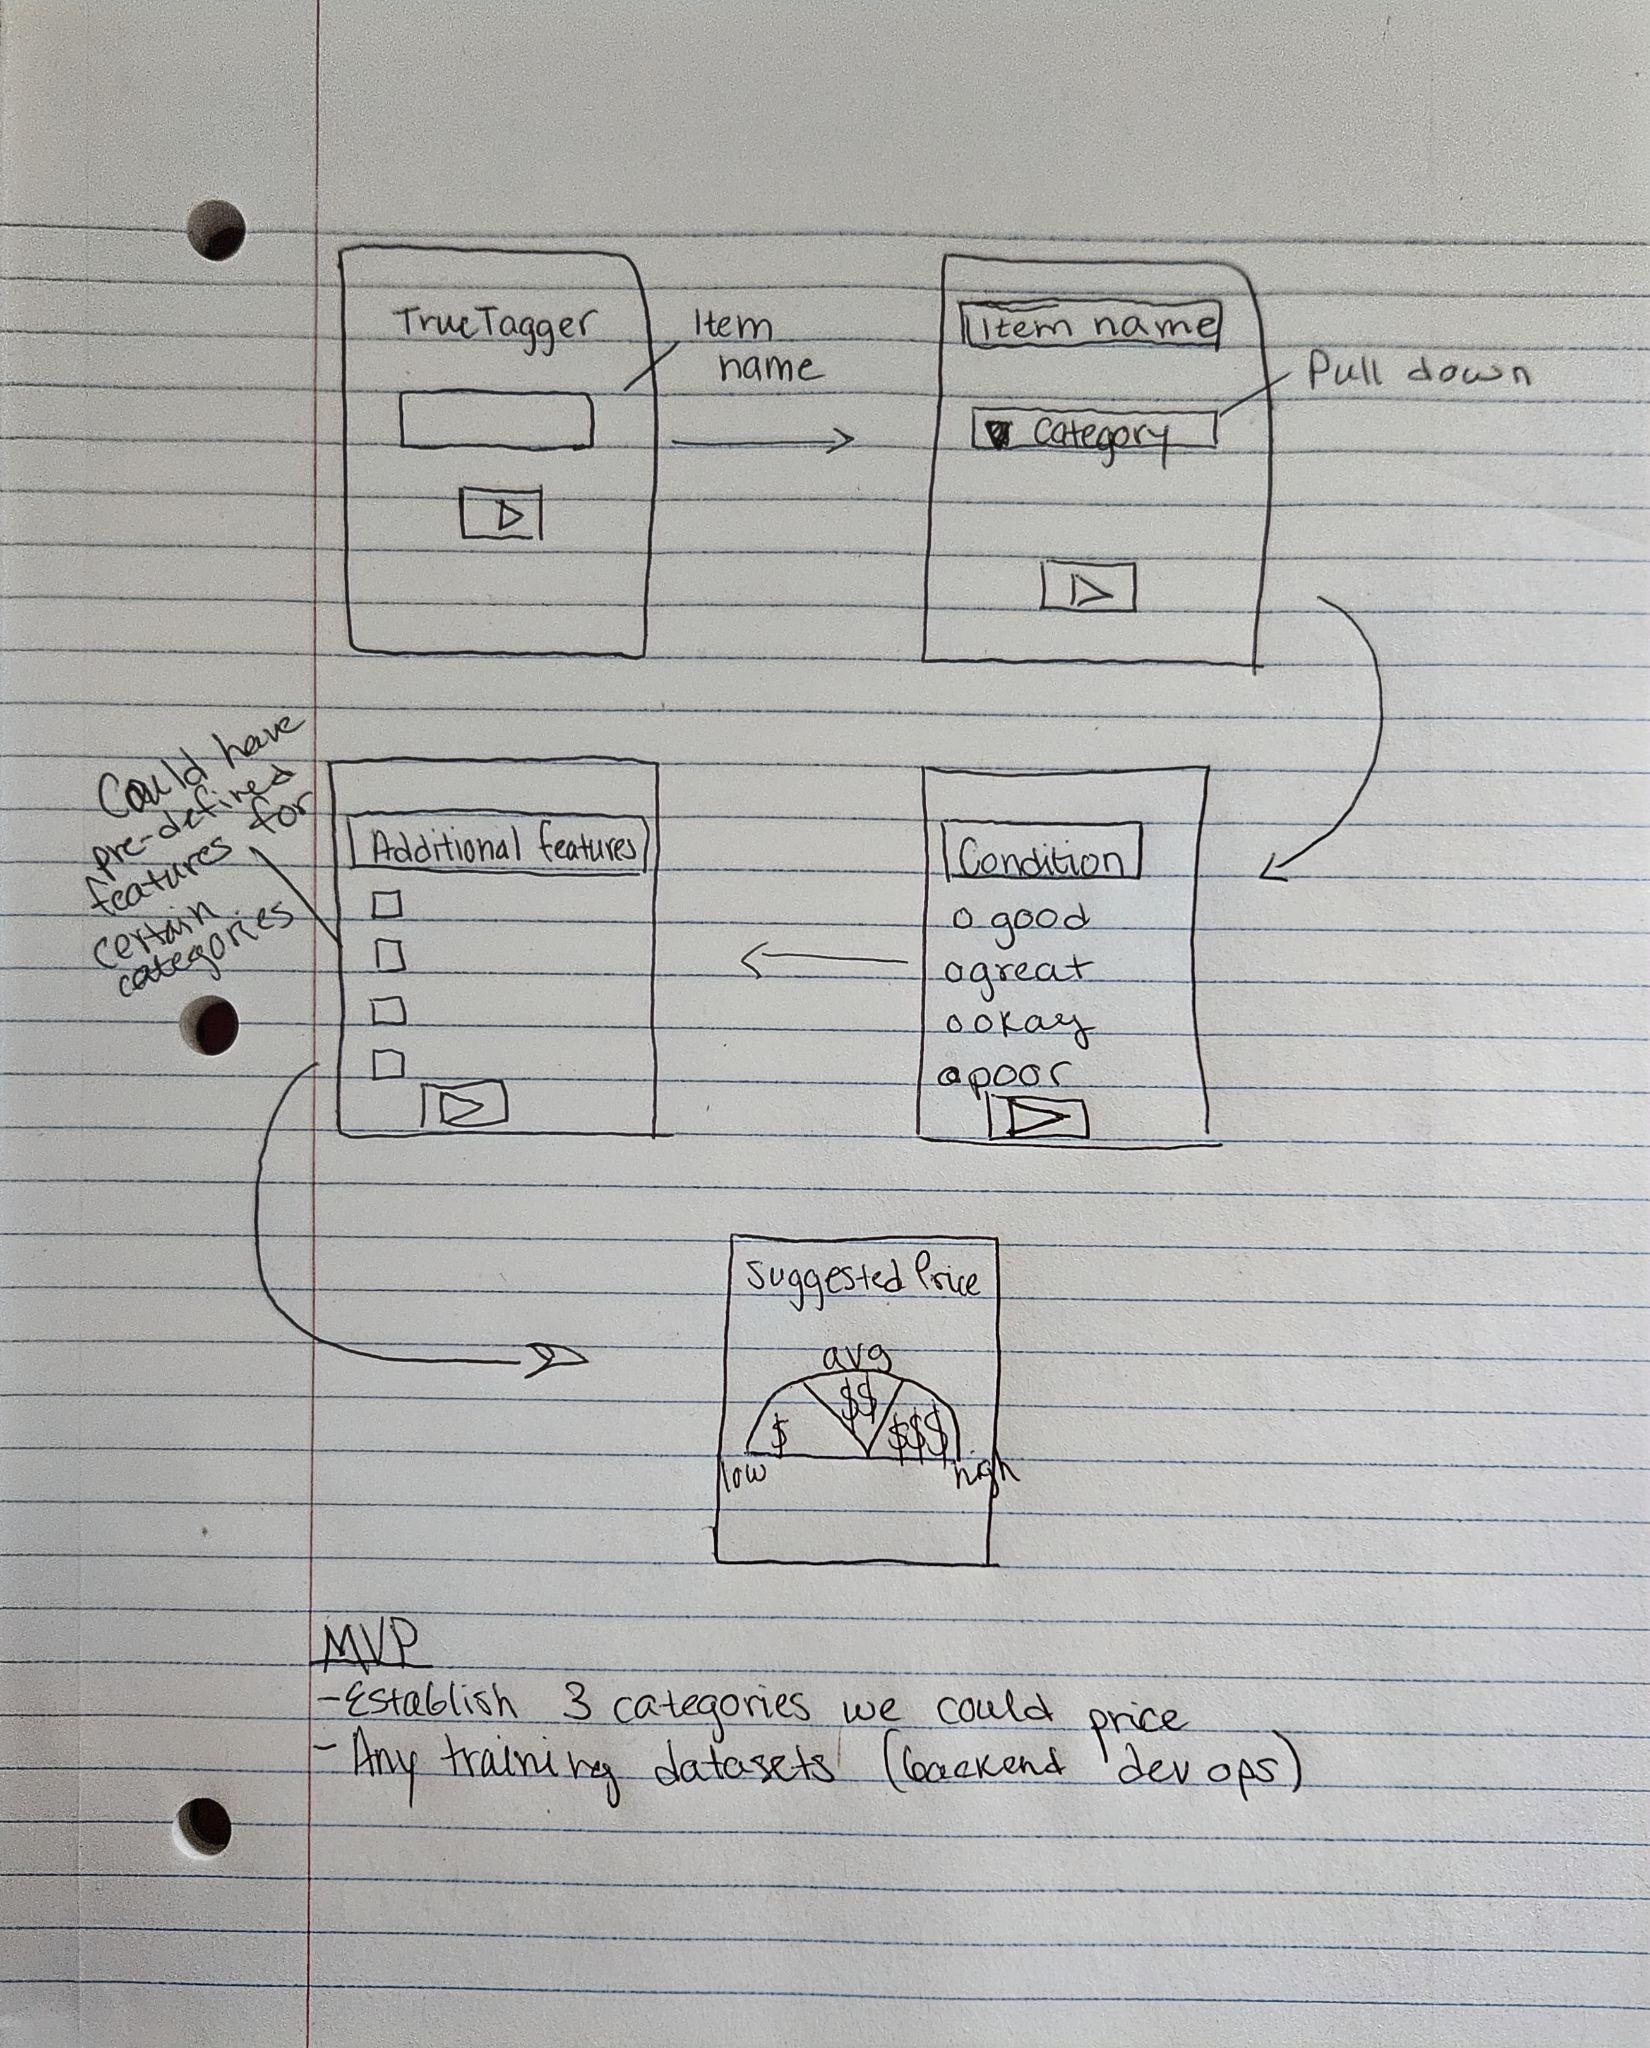 TrueTagger
Item
name
Item name
Pull down
Category
Could have
pre-defined
features for
certain
categories
Additional features
Condition
good
great
okay
poor
Suggested Price
avg
$
$$
$$$
low
high
MVP
-Establish 3 categories we could price
-Any training datasets (backend dev ops)